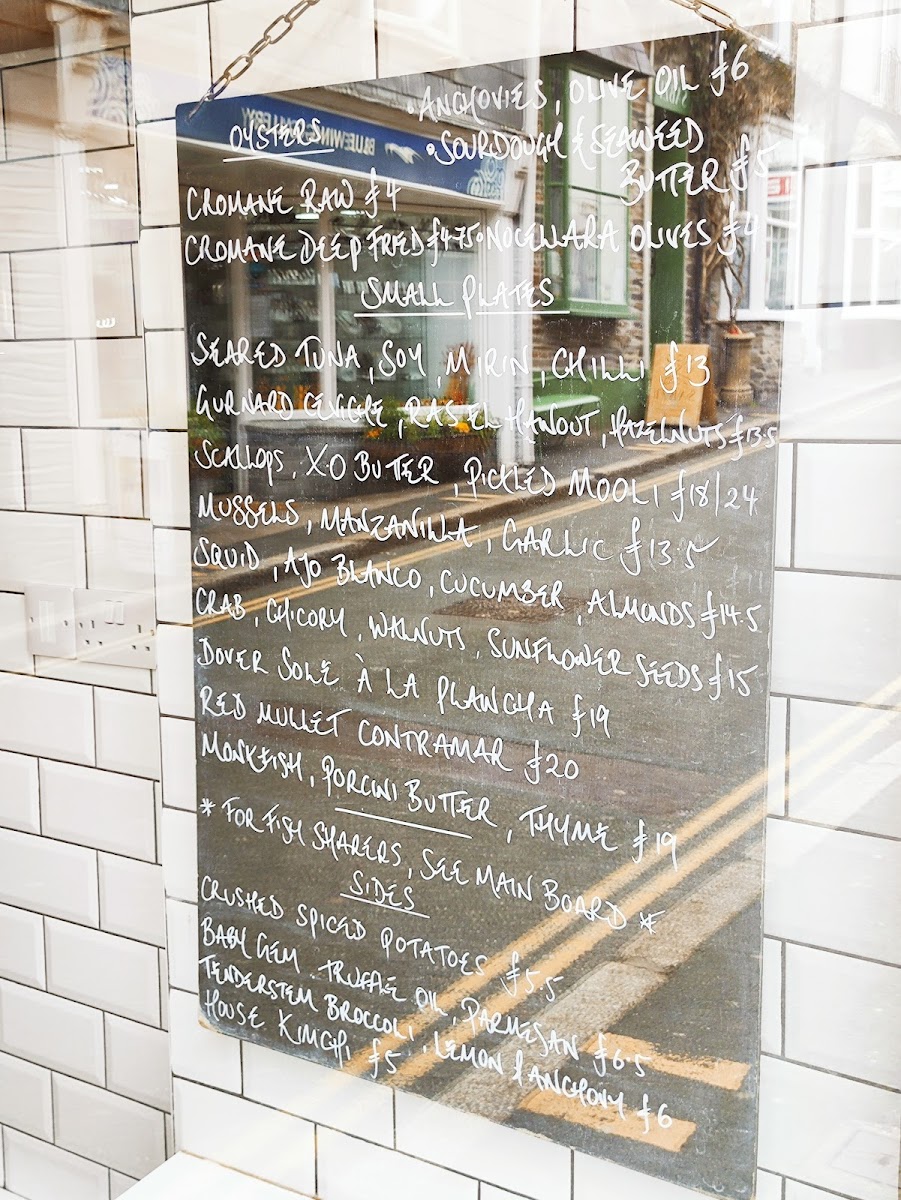 OYSTERS
CROMANE RAW £4
CROMANE DEEP FRIED £4.75
• ANCHOVIES, OLIVE OIL £6
• SOURDOUGH & SEAWEED
BUTTER £5
• NOCELLARA OLIVES £4
SMALL PLATES
SEARED TUNA, SOY, MIRIN, CHILLI £13
GURNARD CEVICHE, RAS EL HANOUT, HAZELNUTS £13.5
SCALLOPS, XO BUTTER, PICKLED MOOLI £18/24
MUSSELS, MANZANILLA, GARLIC £13.5
SQUID, AJO BLANCO, CUCUMBER, ALMONDS £14.5
CRAB, CHICORY, WALNUTS, SUNFLOWER SEEDS £15
DOVER SOLE À LA PLANCHA £19
RED MULLET CONTRAMAR £20
MONKFISH, PORCINI BUTTER, THYME £19
* FOR FISH SHARERS, SEE MAIN BOARD *
SIDES
CRUSHED SPICED POTATOES £5.5
BABY GEM, TRUFFLE OIL, PARMESAN £6.5
TENDERSTEM BROCCOLI, LEMON & ANCHOVY £6
HOUSE KIMCHI £5